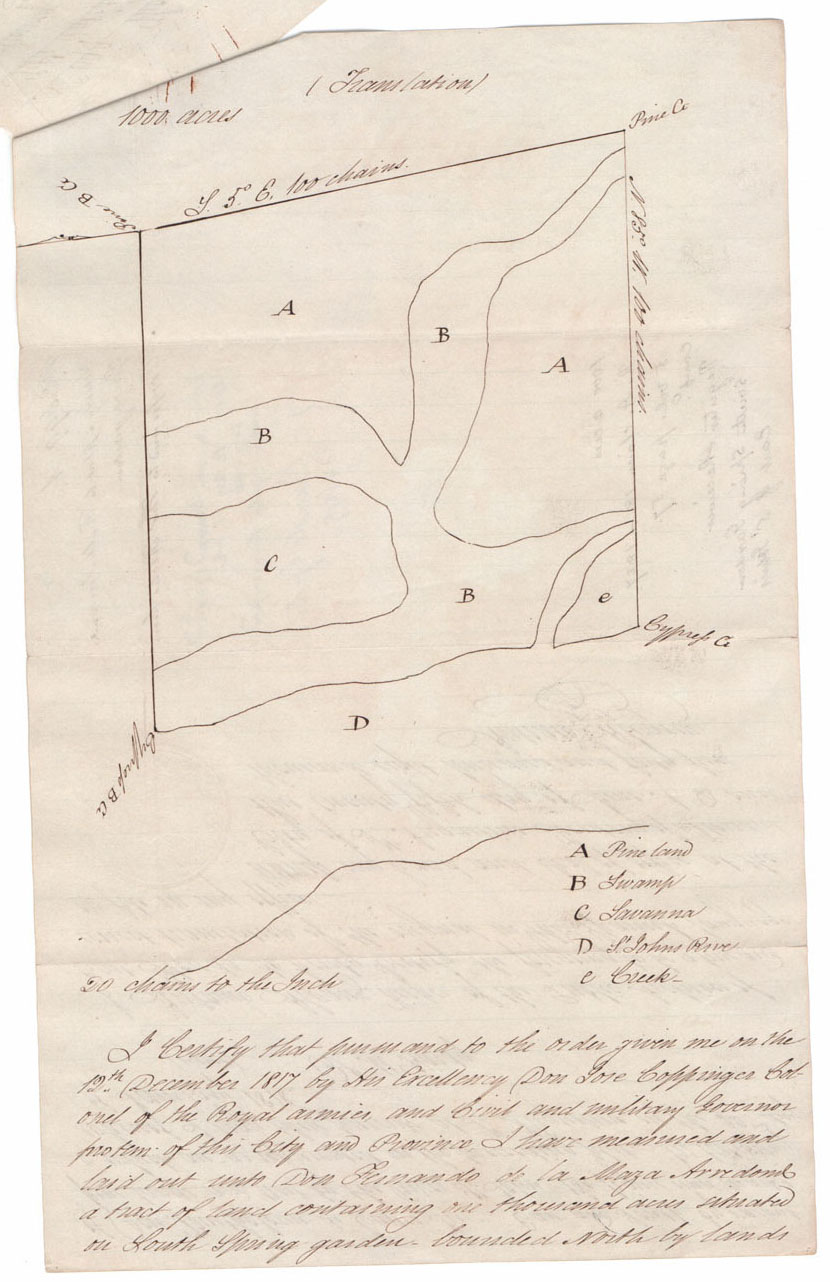 (Translation)
1000 acres
Pine Co
S. 5° E. 100 chains.
Pine B Co
N 85° W. 100 chains.
A
B
A
B
C
B
e
Cypress Co
D
Cypress B Co
A Pine land
B Swamp
C Savanna
D St Johns River
e Creek-
20 chains to the Inch
I Certify that pursuand to the order given me on the
12th December 1817 by His Excellency Don Jose Coppinger Col-
onel of the Royal armies, and Civil and military Governor
protem: of this City and Province, I have measured and
laid out unto Don Fernando de la Maza Arredondo
a tract of land containing one thousand acres situated
on South Spring garden - bounded North by lands